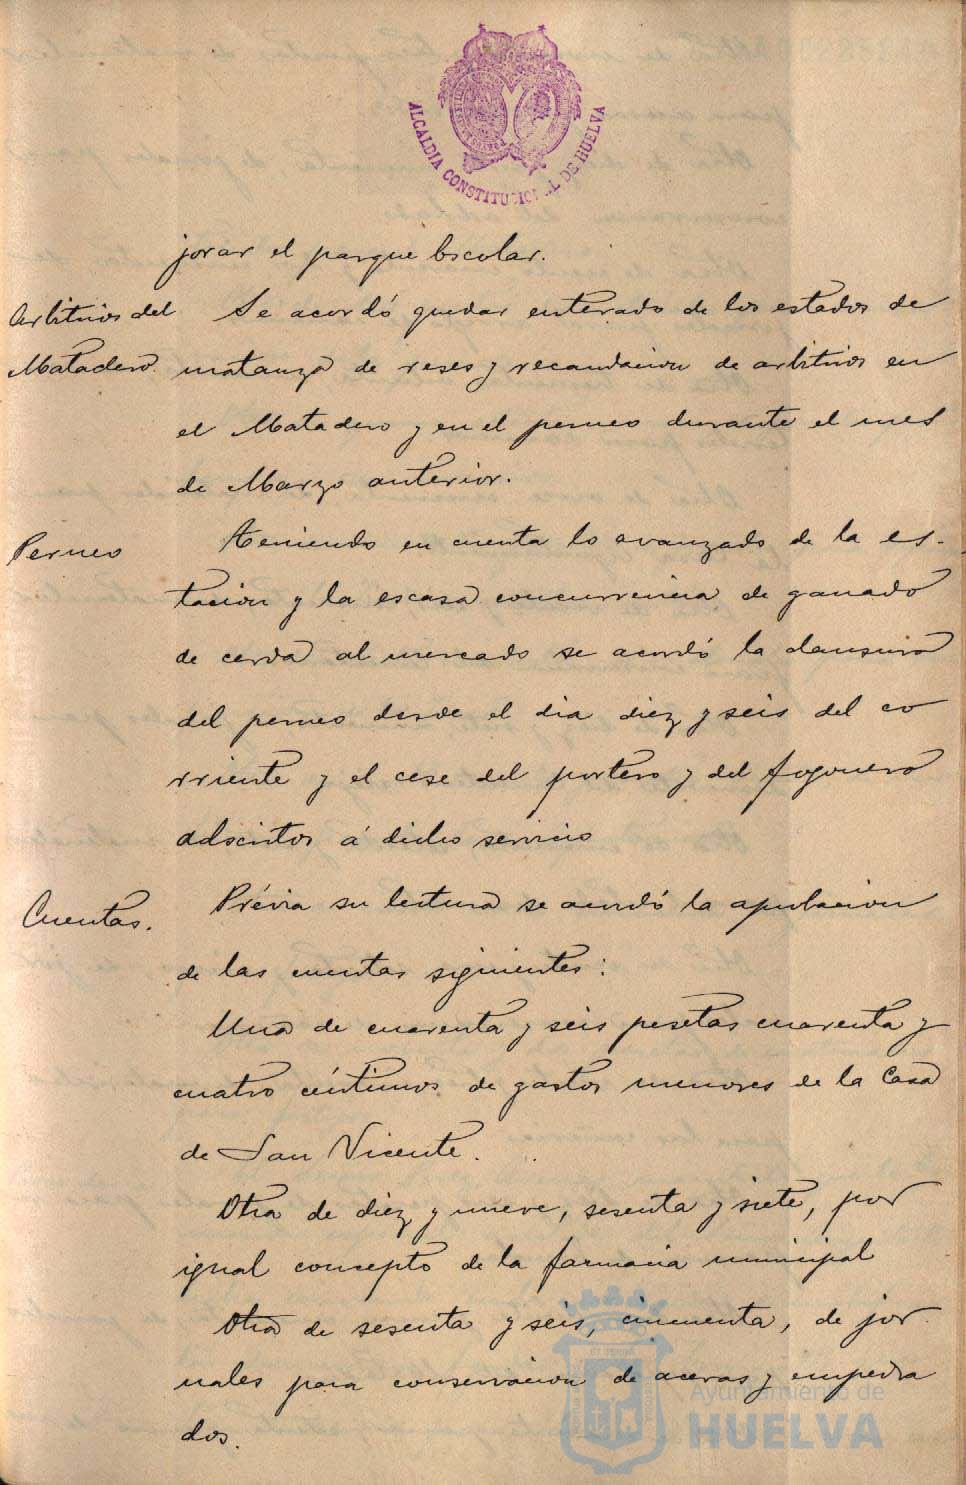 ALCALDIA CONSTITUCIONAL DE HUELVA
jorar el parque Escolar.
Arbitrios del
Matadero.
Se acordó quedar enterado de los estados de
matanza de reses y recaudacion de arbitrios en
el Matadero y en el perneo durante el mes
de Marzo anterior.
Perneo
Teniendo en cuenta lo avanzado de la es-
tacion y la escasa concurrencia de ganado
de cerda al mercado se acordó la clausura
del perneo desde el dia diez y seis del co
rriente y el cese del portero y del fogonero
adscritos á dicho servicio
Cuentas.
Prévia su lectura se acordó la aprobacion
de las cuentas siguientes:
Una de cuarenta y seis pesetas cuarenta y
cuatro céntimos de gastos menores de la Casa
de San Vicente.
Otra de diez y nueve, sesenta y siete, por
igual concepto de la farmacia municipal
Otra de sesenta y seis, cincuenta, de jor
nales para conservacion de aceras y empedra
dos.
Ayuntamiento de
HUELVA